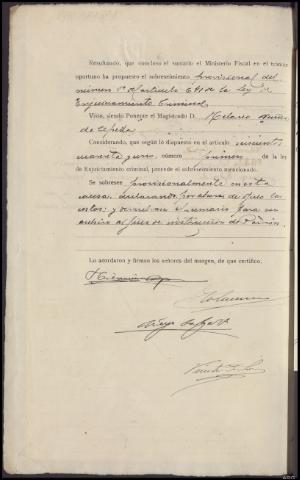 Resultando, que concluso el sumario el Ministerio Fiscal en el trámite
oportuno ha propuesto el sobreseimiento provisional del
número 1º del artículo 641 de la Ley de
Enjuiciamiento Criminal
Visto, siendo Ponente el Magistrado D.
de Cepeda
Considerando, que según lo dispuesto en el artículo seiscientos
cuarenta y uno, número primero de la ley
de Enjuiciamiento criminal, procede el sobreseimiento mencionado.
Se sobresee provisionalmente en esta
causa, declarando por ahora de oficio las
costas; y
archivo al Juez de instrucción de
Lo acordaron y firman los señores del margen, de que certifico.